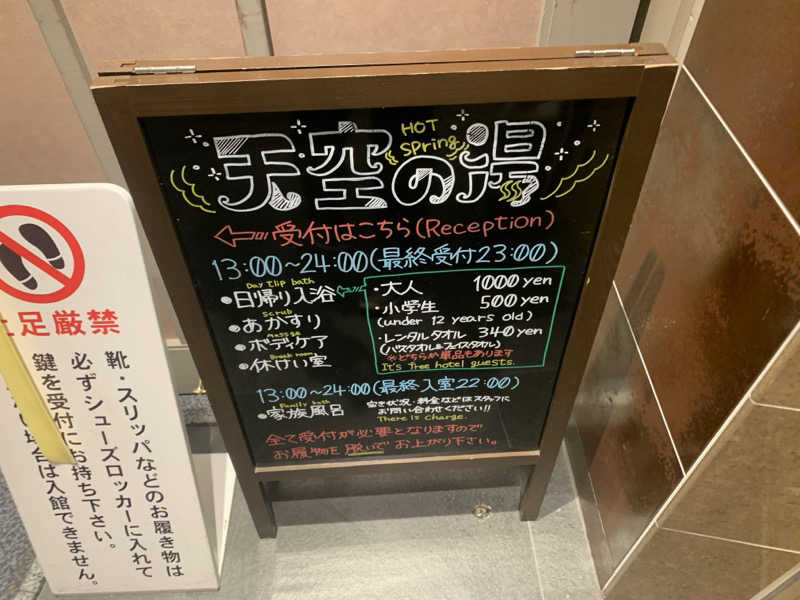 天空の湯
HOT
Spring
受付はこちら(Reception)
13:00~24:00(最終受付23:00)
Day trip bath
・日帰り入浴
Scrub
・あかすり
Massage
・ボディケア
Break room
・休けい室
・大人 1000yen
・小学生 500yen
(under 12 years old)
・レンタルタオル 340yen
(バスタオル&フェイスタオル)
※どちらか単品もあります
It's free hotel guests.
13:00~24:00(最終入室22:00)
Family bath
・家族風呂
空き状況・料金などはスタッフに
お問い合わせください!!
There is charge.
全て受付が必要となりますので
お履物を脱いでお上がり下さい。
土足厳禁
靴・スリッパなどのお履き物は
必ずシューズロッカーに入れて
鍵を受付にお持ち下さい。
場合は入館できません。